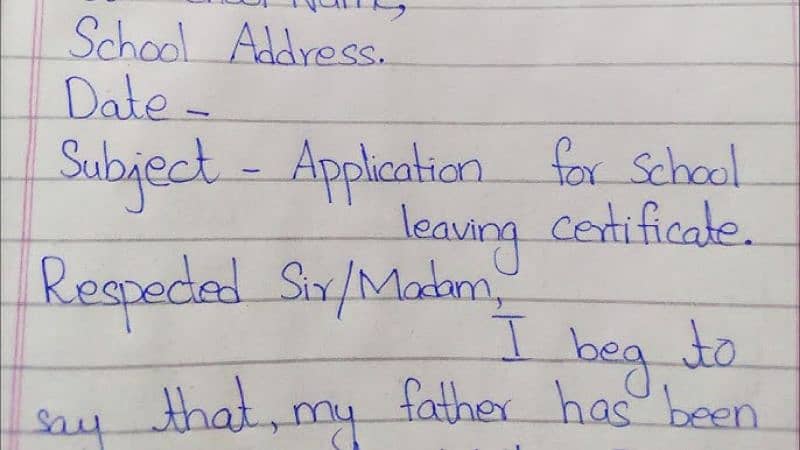 School Name,
School Address.
Date -
Subject - Application for School
leaving certificate.
Respected Sir/Madam,
I beg to
say that, my father has been